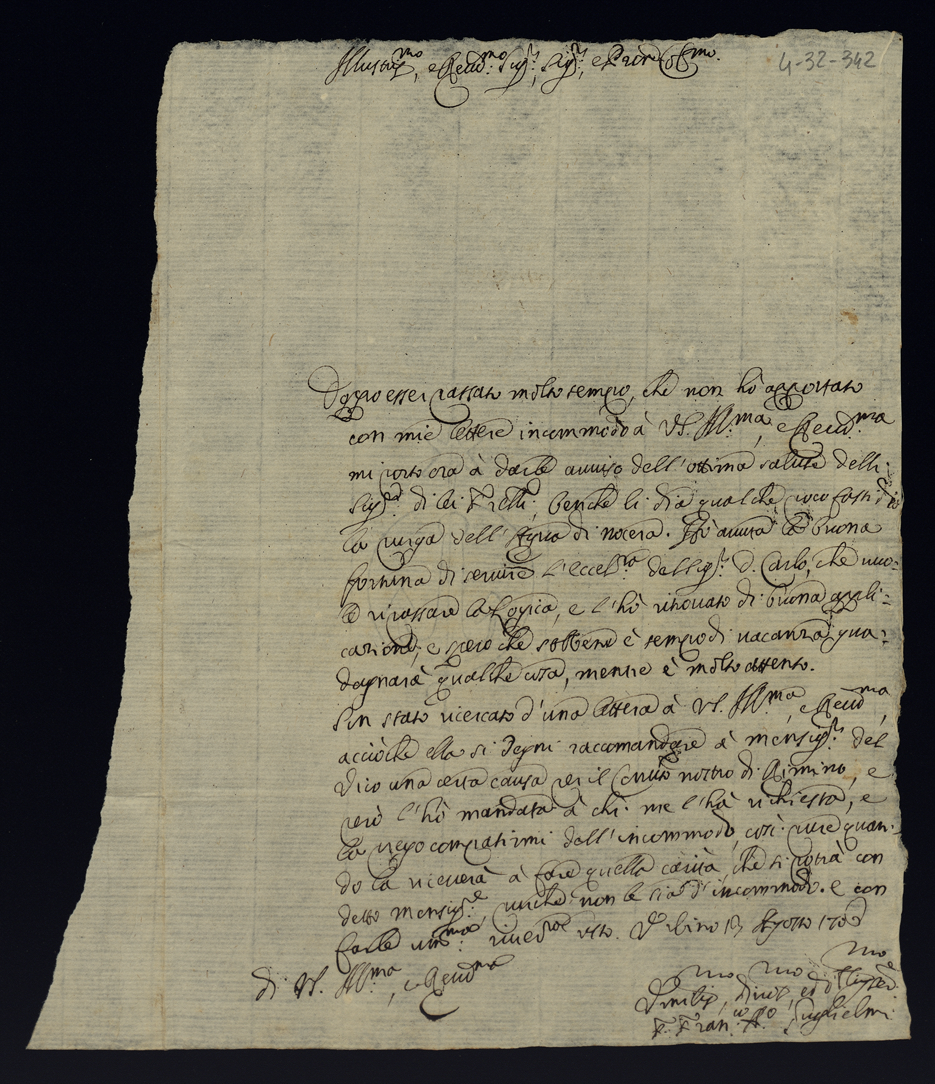 Illustriss.mo, e Reud.mo Sig.r, Sig.r, e Pron Col.mo
4-32-342
Doppo esser passato molto tempo, che non hò apportato
con mie lettere incommodo à VS. Ill.ma, e Reud.ma
mi porto ora à darle auuiso dell'ottima salute delli
Sig.ri di lei Fratelli, benche li dia qualche poco fastidio
la purga dell'Aqua di nocera. Hò auuta la buona
fortuna di seruire l'eccel.za del sig.r D. Carlo, che uuo=
le ripassare la Logica, e l'hò ritrouato di buona appli=
cazione, e spero che sebbene è tempo di uacanza gua=
dagnarà qualche cosa, mentre è molto attento.
Son stato ricercato d'una lettera à VS. Ill.ma, e Reud.ma,
acciòche ella si degni raccomandare à monsig.r Del
Dico una certa causa per il Conuto nostro di Rimino, e
però l'hò mandata à chi me l'hà richiesta, e
la prego compatirmi dell'incommodo, così pure quan=
do la riceuerà à fare quella carità, che si potrà con
detto monsig.re, purche non le sia d'incommodo. e con
farle um.ma riuerenza resto. Urbino 13 Agosto 170
di VS. Ill.ma, e Reud.ma
Umilis.mo, diuot.mo, ed
F. Fran.co A.o Guglielmi